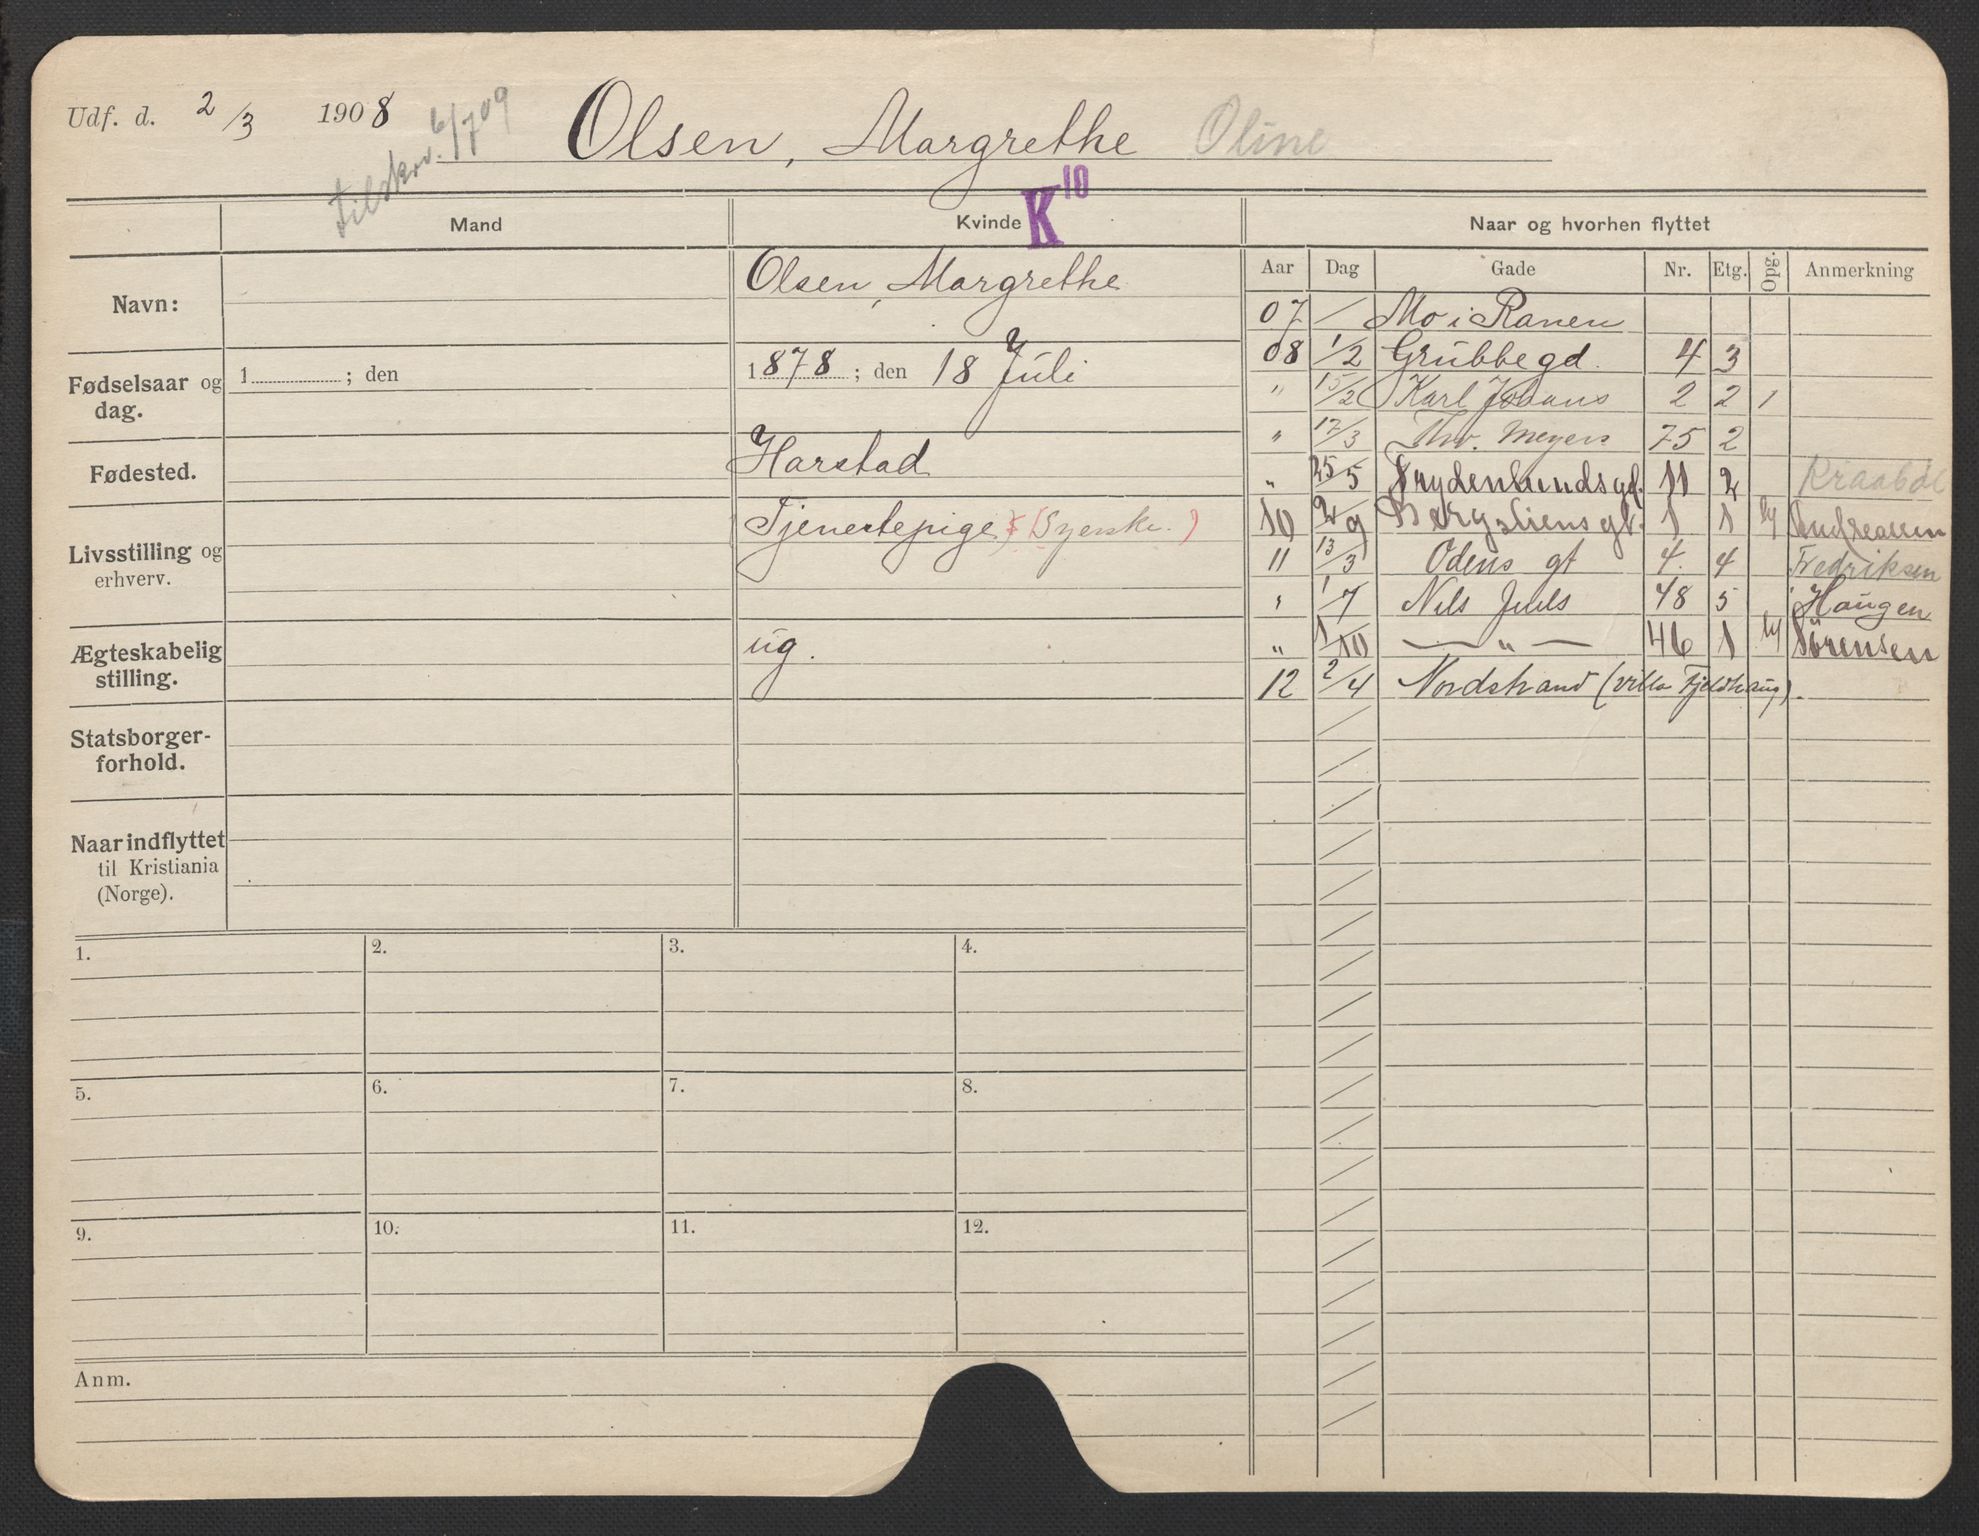 Udf. d. 2/3 1908
tilskrv. 6/7 09
Olsen, Margrethe Oline
K 10
Mand
Kvinde
Naar og hvorhen flyttet
Aar Dag Gade Nr. Etg. Opg. Anmerkning
Navn:
Olsen, Margrethe
Fødselsaar og dag.
1 ; den
1878 ; den 18 Juli
Fødested.
Harstad
Livsstilling og erhverv.
Tjenestepige (Syerske.)
Ægteskabelig stilling.
ug.
Statsborger-
forhold.
Naar indflyttet
til Kristiania
(Norge).
07 / Mo i Ranen
08 1/2 Grubbegd. 4 3
" 15/2 Karl Johans 2 2 1
" 17/3 Thv. Meyers 75 2
" 25/5 Frydenlundsgd. 11 2 Kraabøl
10 2/9 Bergsliensgt. 1 1 Andreassen
11 13/3 Odens gt 4. 4 Fredriksen
" 1/7 Nils Juels 48 5 Haugen
" 1/10 — " — 46 1 Sørensen
12 2/4 Nordstrand (villa Fjeldhaug).
1.
2.
3.
4.
5.
6.
7.
8.
9.
10.
11.
12.
Anm.